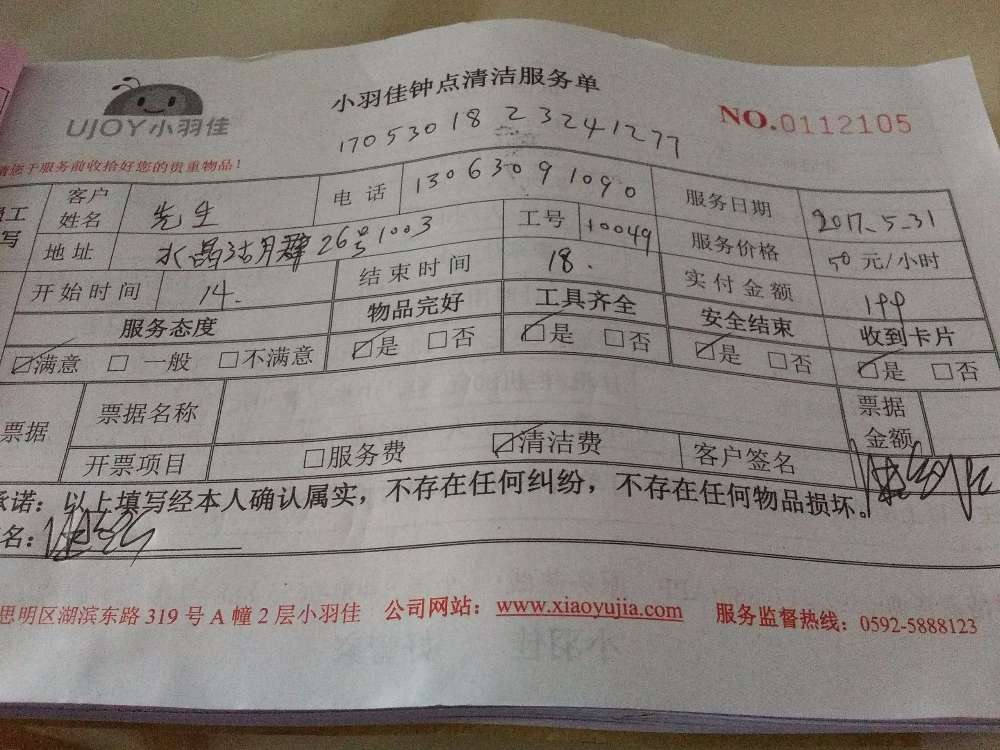 UJOY小羽佳
小羽佳钟点清洁服务单
NO.0112105
17053018 23241277
请您于服务前收拾好您的贵重物品！
客户姓名 先生 电话 13063091090 服务日期 2017.5.31
地址 水晶 26号1003 工号 10049 服务价格 50元/小时
开始时间 14. 结束时间 18. 实付金额 199
服务态度 物品完好 工具齐全 安全结束 收到卡片
☑满意 □一般 □不满意 ☑是 □否 ☑是 □否 ☑是 □否 ☑是 □否
票据 票据名称 票据金额
开票项目 □服务费 ☑清洁费 客户签名
承诺：以上填写经本人确认属实，不存在任何纠纷，不存在任何物品损坏。
名：
思明区湖滨东路319号A幢2层小羽佳 公司网站：www.xiaoyujia.com 服务监督热线：0592-5888123